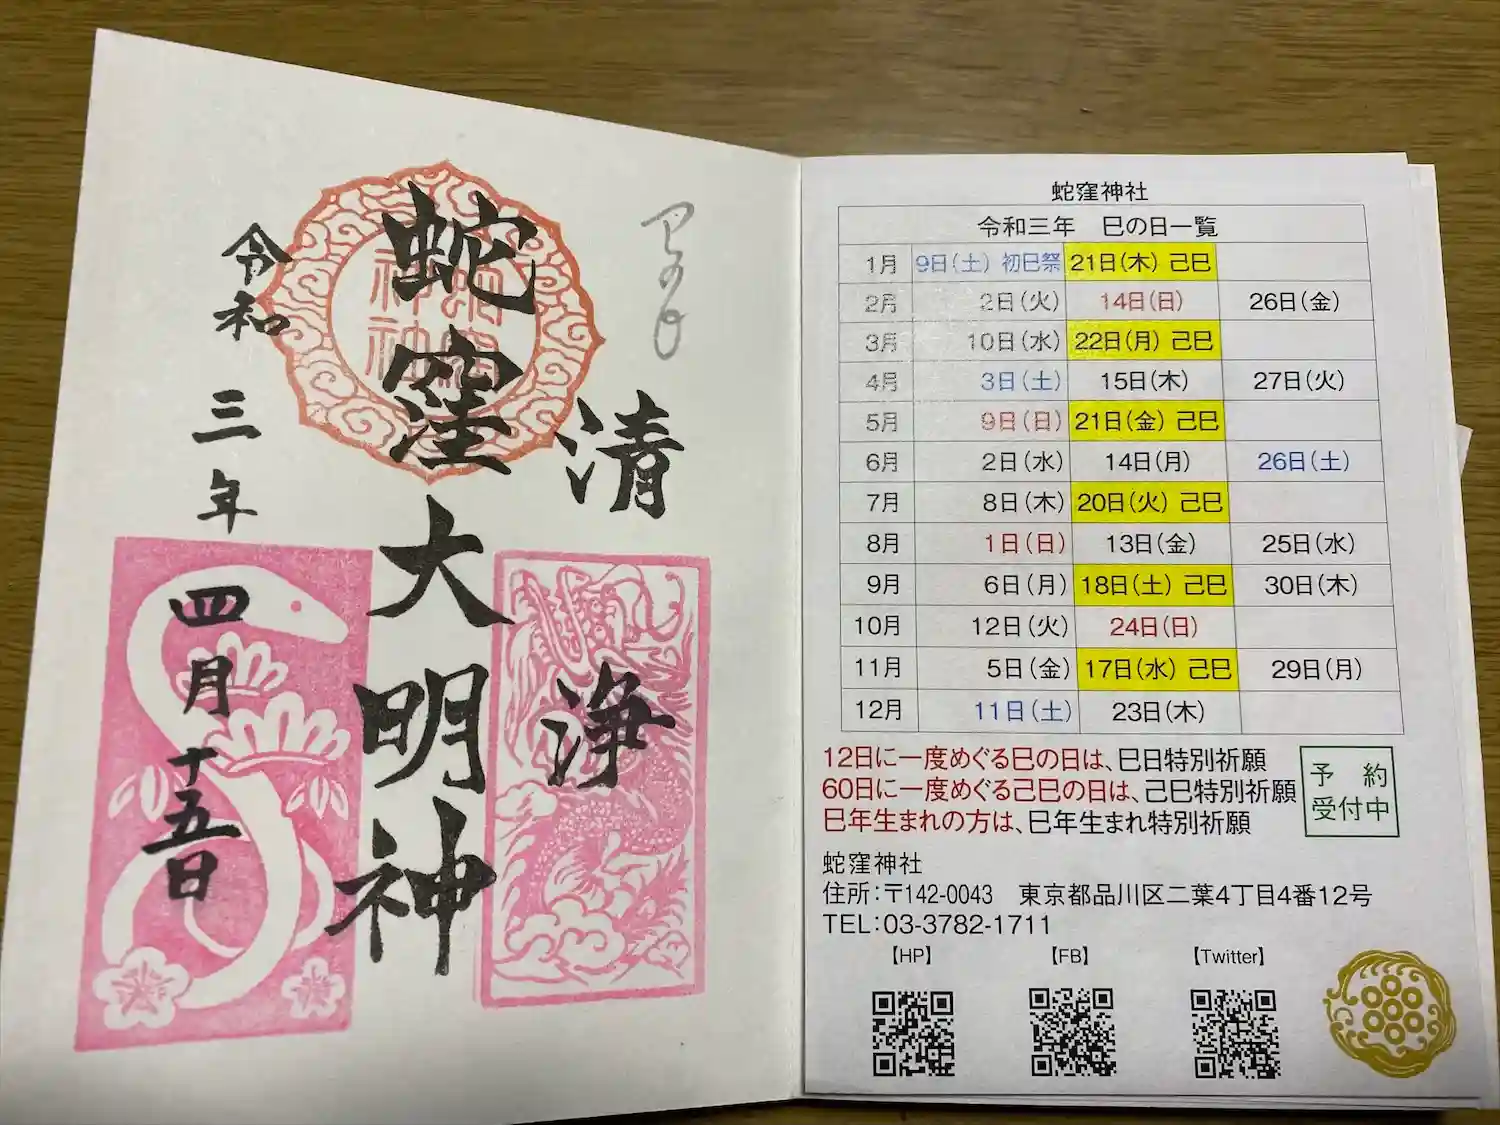 巳の日
清
浄
蛇窪大明神
蛇窪
神社
令和三年四月十五日
蛇窪神社
令和三年 巳の日一覧
1月 9日(土) 初巳祭 21日(木) 己巳
2月 2日(火) 14日(日) 26日(金)
3月 10日(水) 22日(月) 己巳
4月 3日(土) 15日(木) 27日(火)
5月 9日(日) 21日(金) 己巳
6月 2日(水) 14日(月) 26日(土)
7月 8日(木) 20日(火) 己巳
8月 1日(日) 13日(金) 25日(水)
9月 6日(月) 18日(土) 己巳 30日(木)
10月 12日(火) 24日(日)
11月 5日(金) 17日(水) 己巳 29日(月)
12月 11日(土) 23日(木)
12日に一度めぐる巳の日は、巳日特別祈願
60日に一度めぐる己巳の日は、己巳特別祈願
巳年生まれの方は、巳年生まれ特別祈願
予約
受付中
蛇窪神社
住所：〒142-0043 東京都品川区二葉4丁目4番12号
TEL：03-3782-1711
【HP】 【FB】 【Twitter】